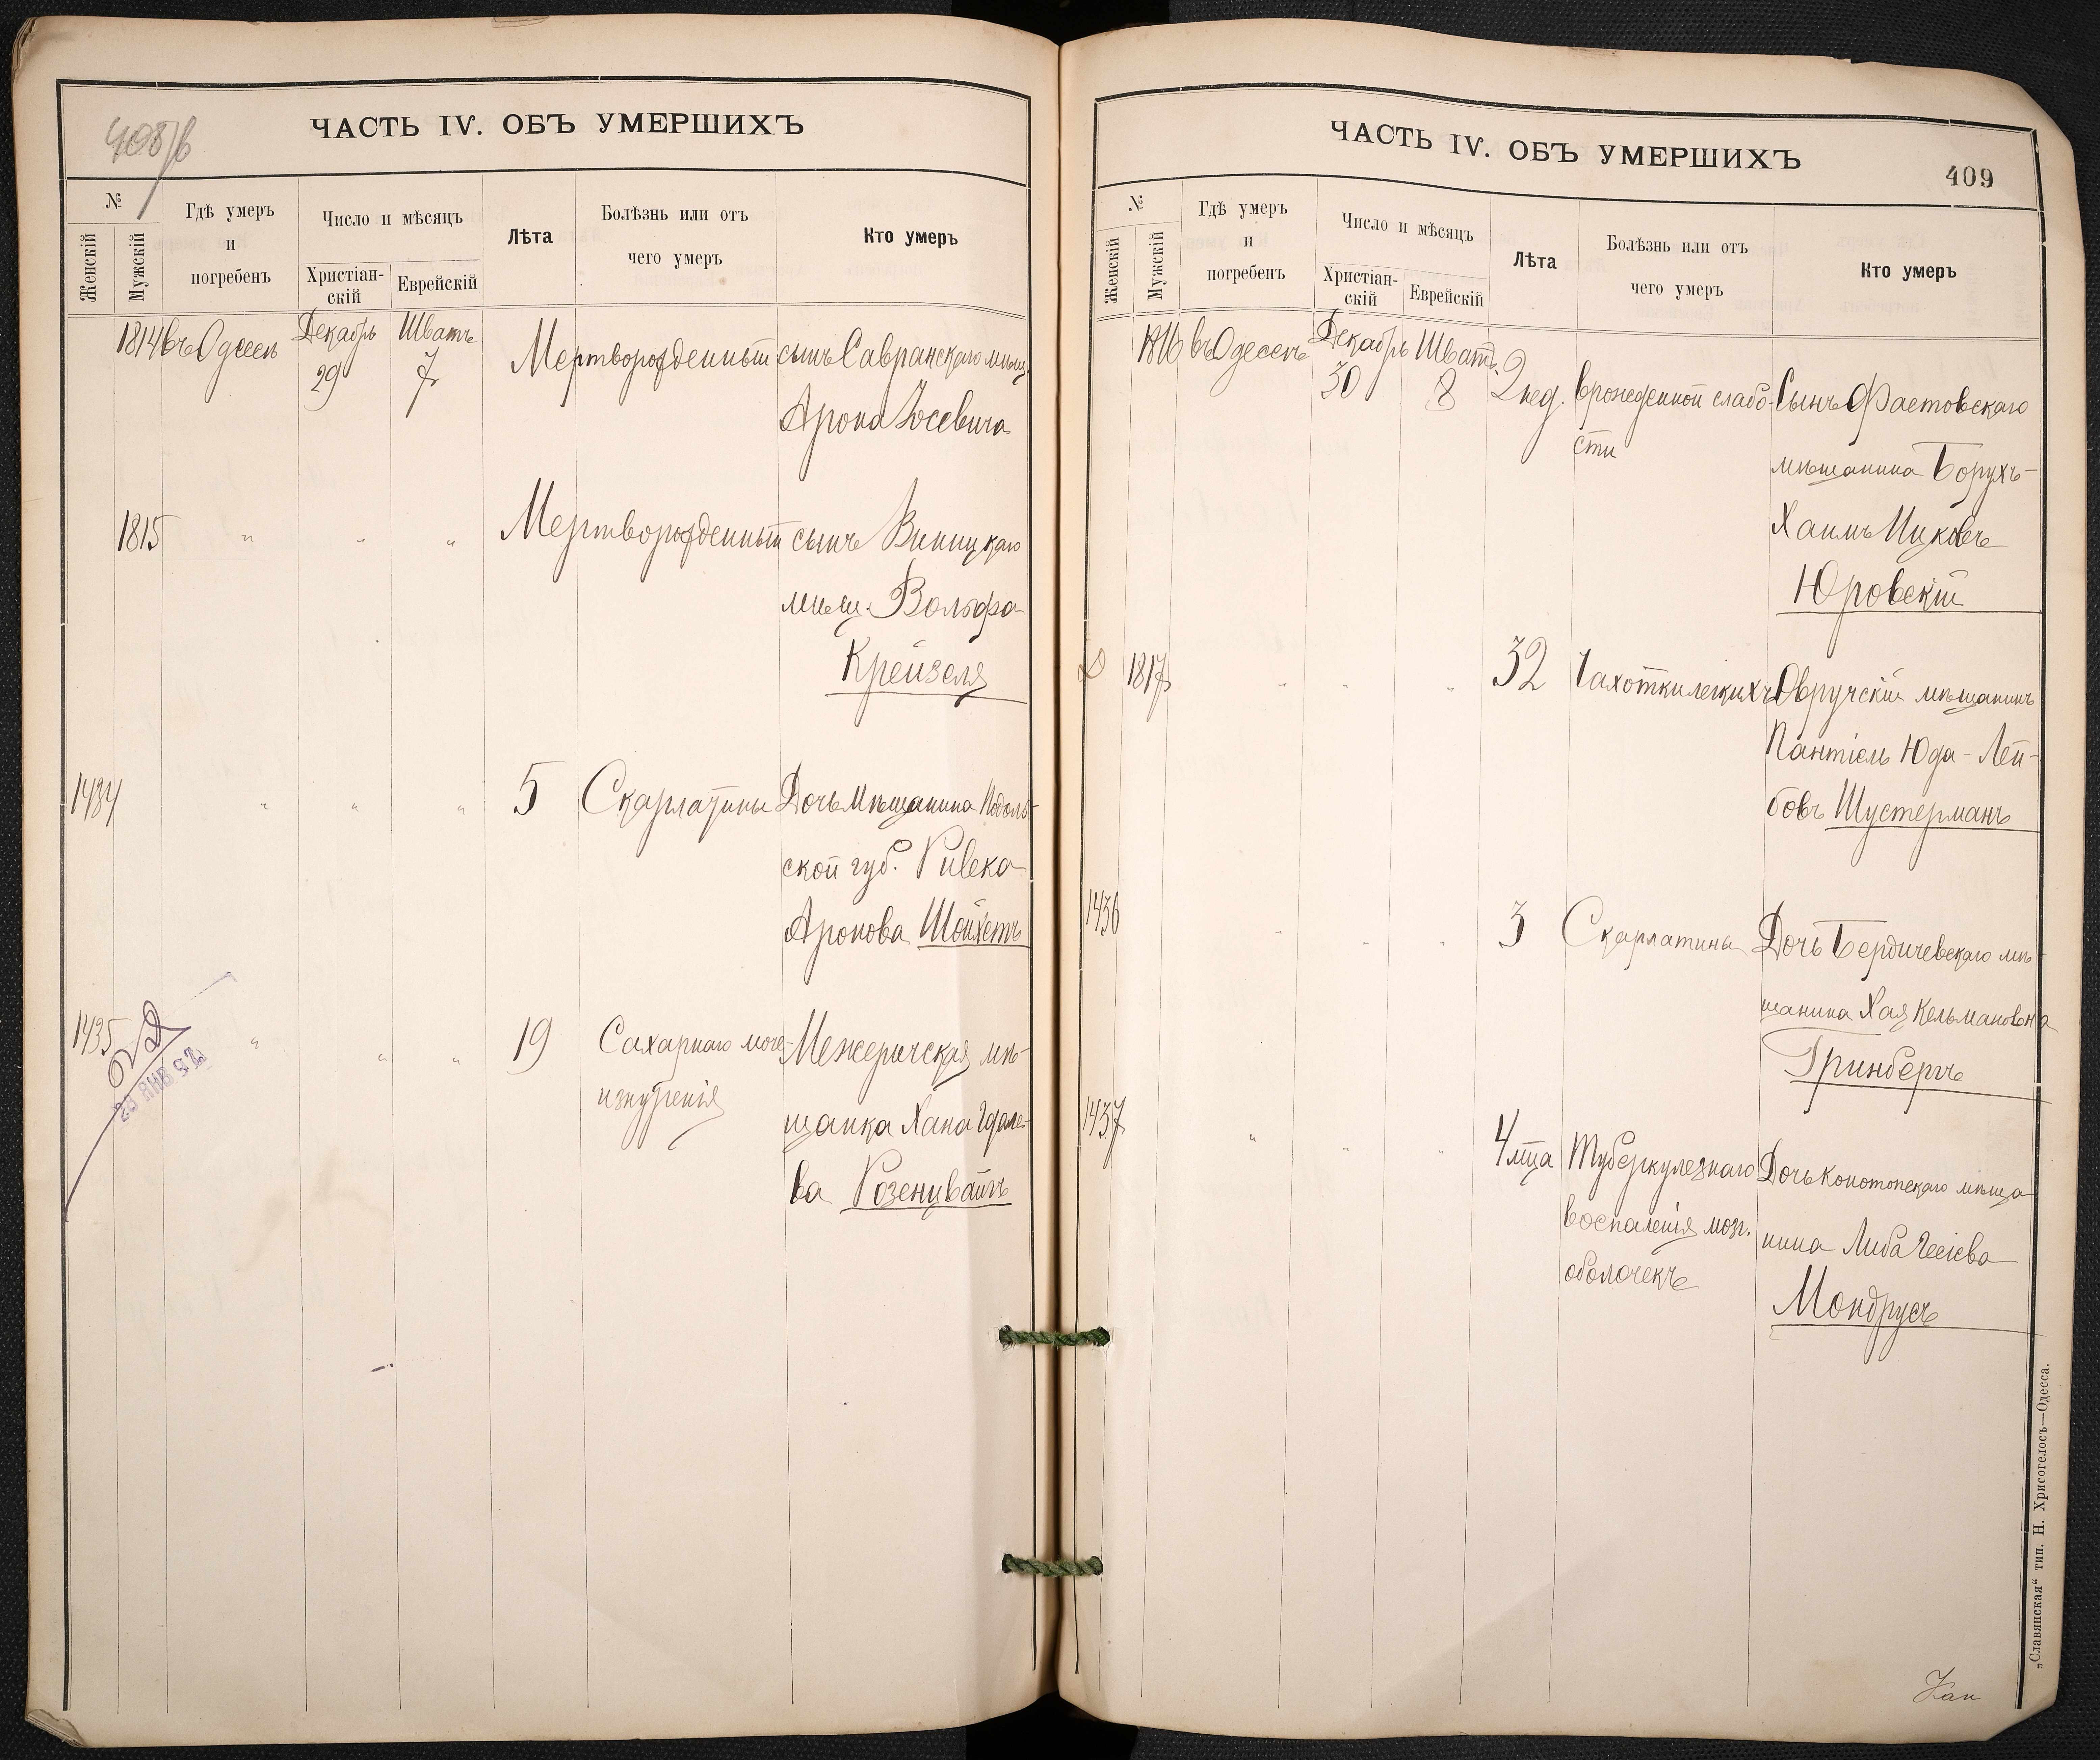 408/б
ЧАСТЬ IV. ОБЪ УМЕРШИХЪ
№
Женскій
Мужскій
Гдѣ умеръ
и
погребенъ
Число и мѣсяцъ
Христіан-
скій
Еврейскій
Лѣта
Болѣзнь или отъ
чего умеръ
Кто умеръ
1814 въ Одессѣ Декабрь 29 Шватъ 7 Мертворожденный сынъ Савранскаго мѣщ.
Арона Іосевича
1815 " " " Мертворожденный сынъ Винницкаго
мѣщ. Вольфа
Крейзеля
1434 " " " 5 Скарлатины Дочь мѣщанина Подоль-
ской губ. Ривека
Аронова Шойхетъ
1435 " " " 19 Сахарнаго моче- Межеричская мѣ-
изнуренія щанка Хана
ва Розенцвайгъ
ЧАСТЬ IV. ОБЪ УМЕРШИХЪ
409
№
Женскій
Мужскій
Гдѣ умеръ
и
погребенъ
Число и мѣсяцъ
Христіан-
скій
Еврейскій
Лѣта
Болѣзнь или отъ
чего умеръ
Кто умеръ
1816 въ Одессѣ Декабрь 30 Шватъ 8 2 нед. врожденной слабо- Сынъ Фастовскаго
сти мѣщанина Борухъ-
Хаимъ Ицковъ
Юровскій
1817 " " " 32 Чахотки легкихъ Овручскій мѣщанинъ
Пантіель Юда-Лей-
бовъ Шустерманъ
1436 " " " 3 Скарлатины Дочь Бердичевскаго мѣ-
щанина Хая Кельмановна
Гринбергъ
1437 " " " 4 мца Туберкулезнаго Дочь Конотопскаго мѣща-
воспаленія мозг. нина Либа
оболочекъ Мондрусъ
„Славянская“ тип. Н. Хрисогелосъ—Одесса.